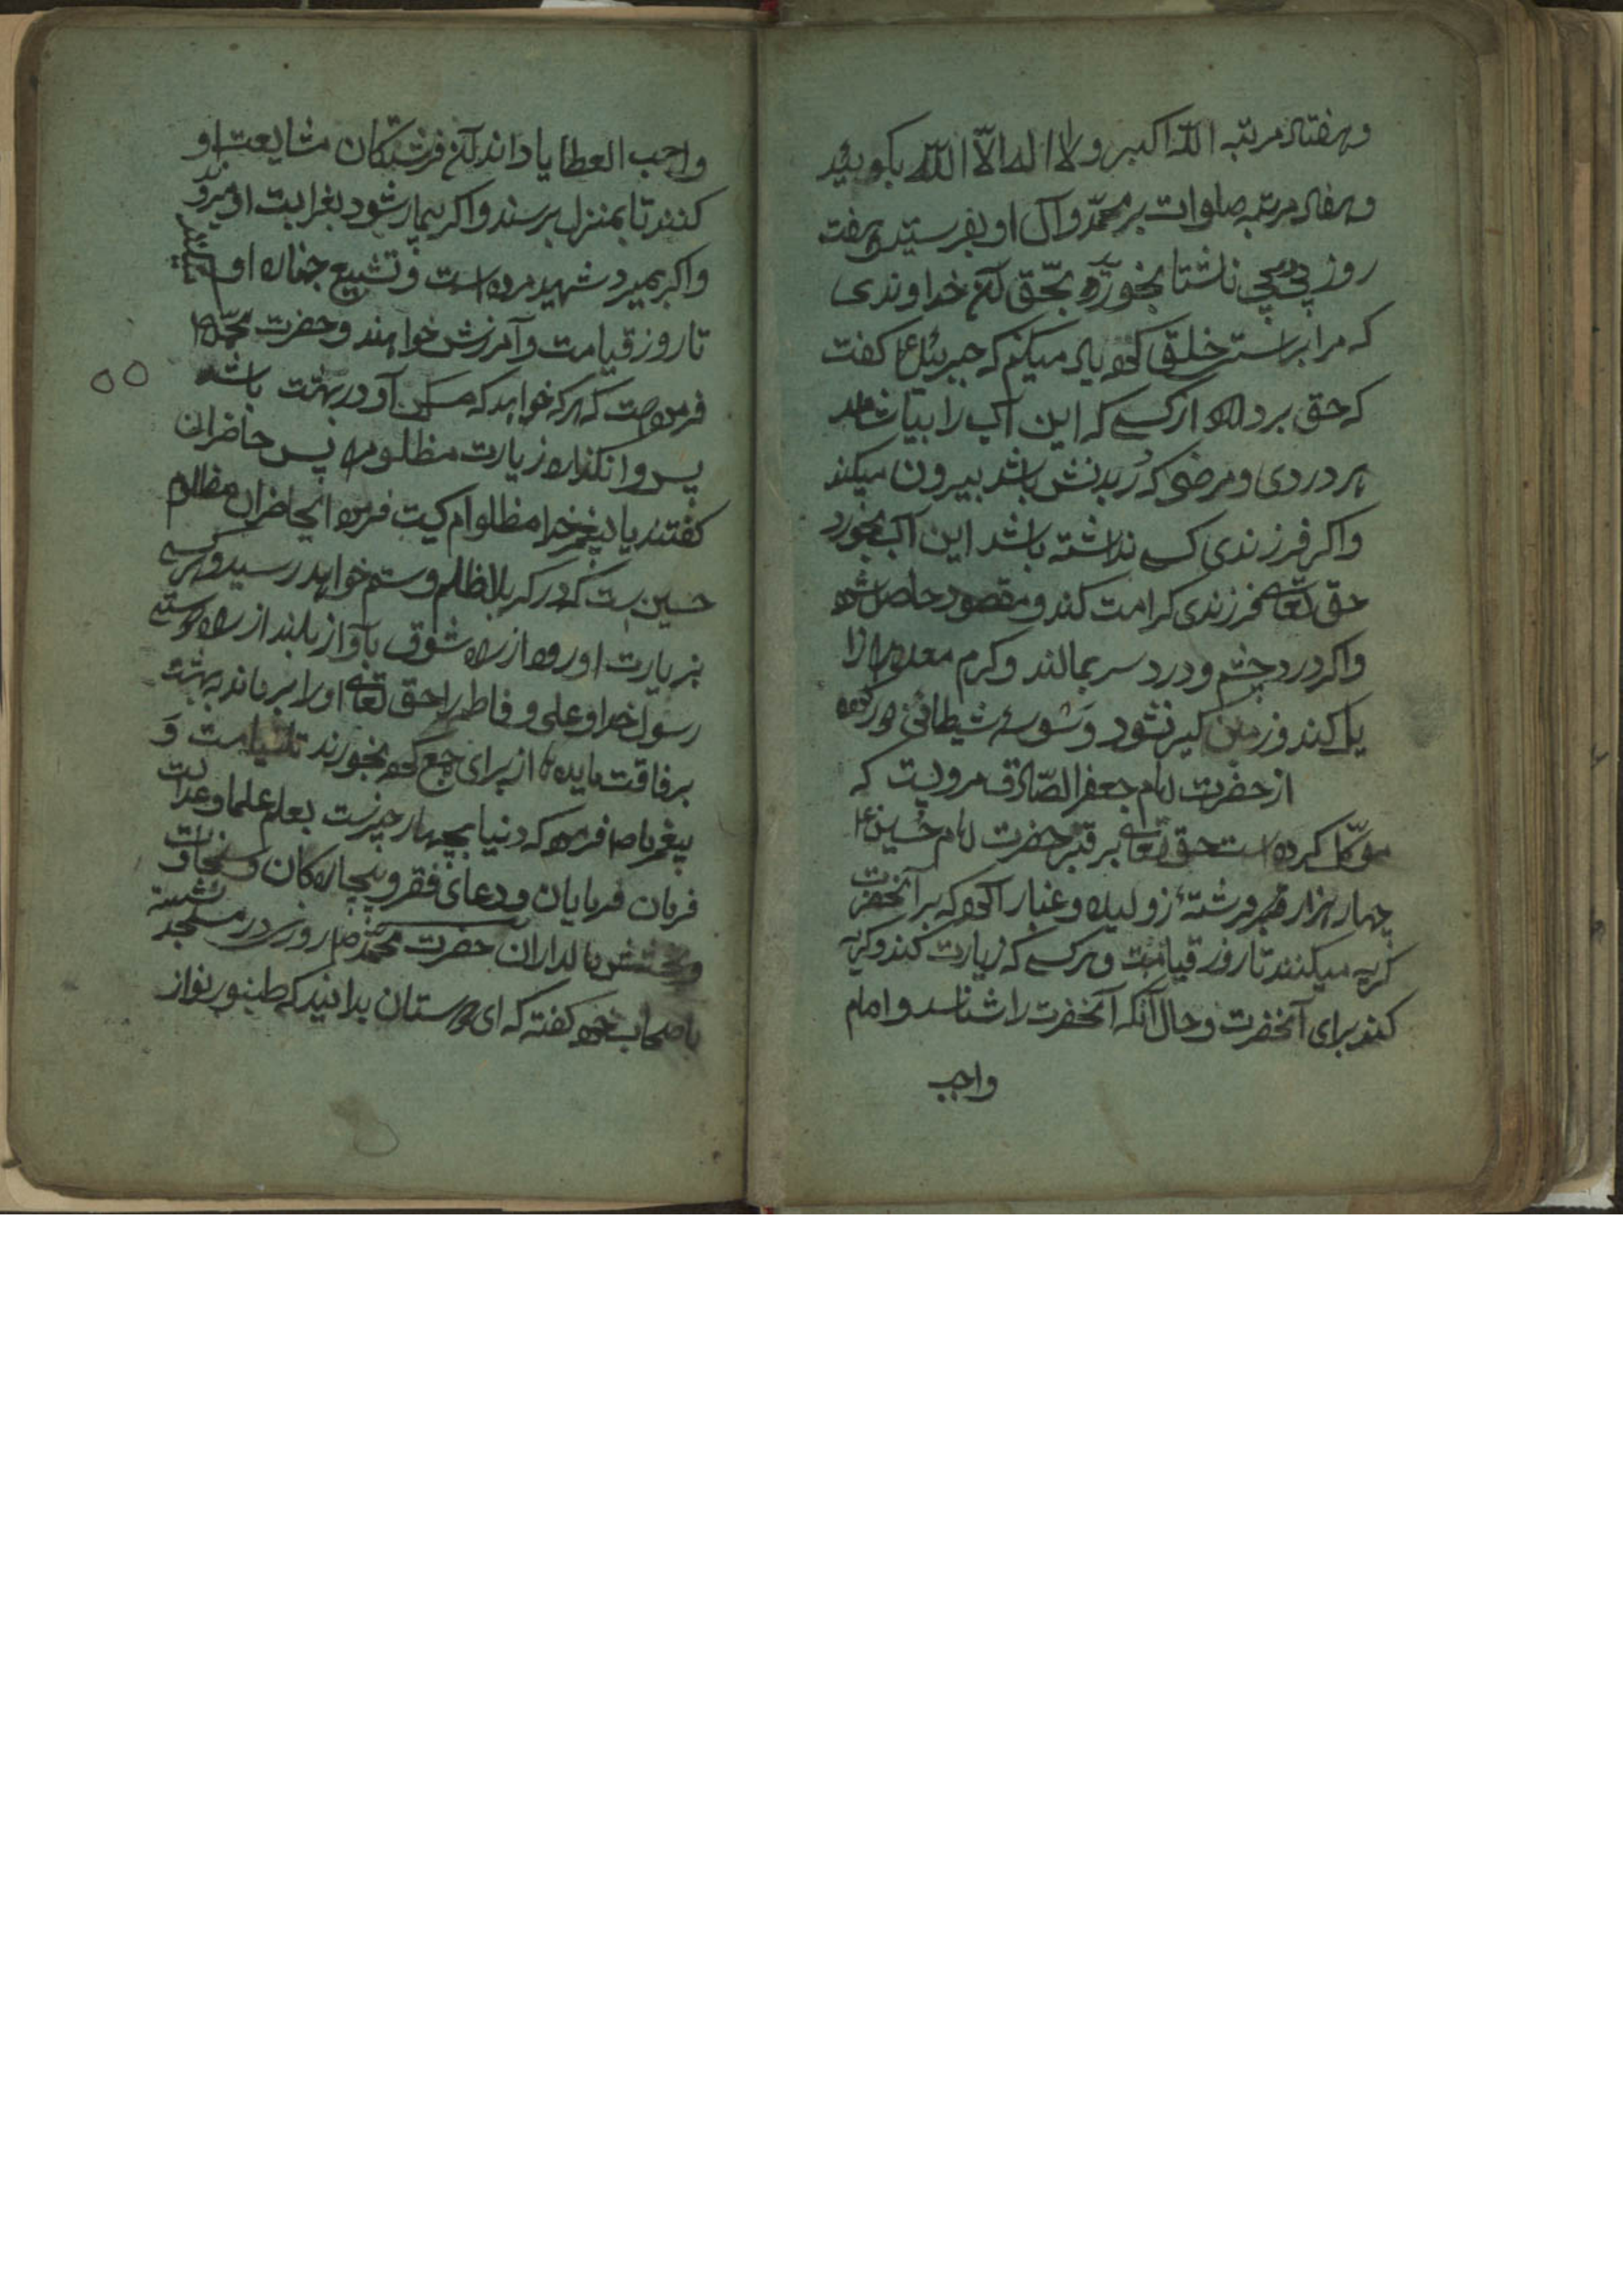 وهفتاد مرتبه الله اکبر ولا اله الّا الله بکویید
وهفتاد مرتبه صلوات بر محمّد وآل او بفرستید وهفت
روز پی در پی ناشتا بخورد بحّق آن خداوندی
که مرا براستی خلق کرد یاد میکنم که جبرئیل ع گفت
که حق بردارد از کسی که این آب را بیاشامد
هر دردی ومرضی که در بدنش باشد بیرون میکند
واکر فرزندی کسی نداشته باشد این آب بخورد
حق تعالی فرزندی کرامت کند ومقصود حاصل شود
واکر درد چشم ودرد سر بمالند وکرم معده را
پاک کند وزمین کیر نشود و شیطانی دور
از حضرت امام جعفر الصّادق مرویست که
موکّل کرده است حق تعالی بر قبر حضرت امام حُسین ع
چهار هزار فرشتهٔ زولیده وغبار آلود که بر آنحضرت
کریه میکنند تا روز قیامت وهر کسی که زیارت کند وکریه
کند برای آنحضرت وحال آنکه آنحضرت را شناسد وامام
واجب
واجب العطایا داند آن فرشتکان مشایعت او
کنند تا بمنزل برسند واکر بیمار شود او میروند
واکر بمیرد شهید مرده است وتشییع جنازه او
تا روز قیامت وآمرزش خواهند وحضرت محمّد ص
فرموده است که هرکه خواهد که مسکن او در بهشت باشد
پس وانکذارد زیارت مظلوم را پس حاضران
کفتند یا پیغمبر خدا مظلوم کیست فرمود ایحاضران مظلوم
حسین است که در کربلا ظلم وستم خواهد رسید وهر کسی
بزیارت او رود از راه شوق بآواز بلند از راه دوستی
رسول خدا وعلی و فاطمه را حق تعالی او را برساند بهشت
برفاقت از برای جمع کرد بخورند تا قیامت وَ
پیغمبر ما ص فرمود که دنیا بچهار چیزست بعلم علما وعدالت
فرمان فرمایان ودعای فقر وبیچاره کان وسخاوت
وبخشش مالداران حضرت محمّد ص روزی در مسجد نشسته
باصحاب خود کفته که ای دوستان بدانید که طنبور نواز